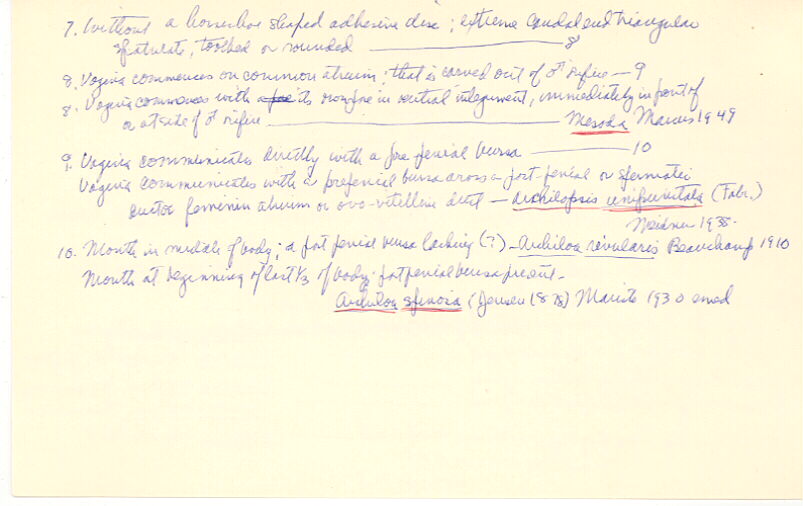 7. Without a horseshoe shaped adhesive disc; extreme caudal end triangular
spatulate, toothed or rounded — 8
8. Vagina commences on common atrium; that is carved out of ♂ orifice — 9
8. Vagina commences with its own pore in ventral integument, immediately in front of
or at side of ♂ orifice — Mesoda Marcus 1949
9. Vagina communicates directly with a pre penial bursa — 10
Vagina communicates with a prepenial bursa across a post-penial or spermatic
ductor feminin atrium or ovo-vitelline duct — Archilopsis unipunctata (Fabr.)
Meixner 1938.
10. Mouth in middle of body; a post penial bursa lacking (?) — Archiloa rivularis Beauchamp 1910
Mouth at beginning of last 1/3 of body; postpenial bursa present —
Archiloa spinosa (Jensen 1878) 1930 emend